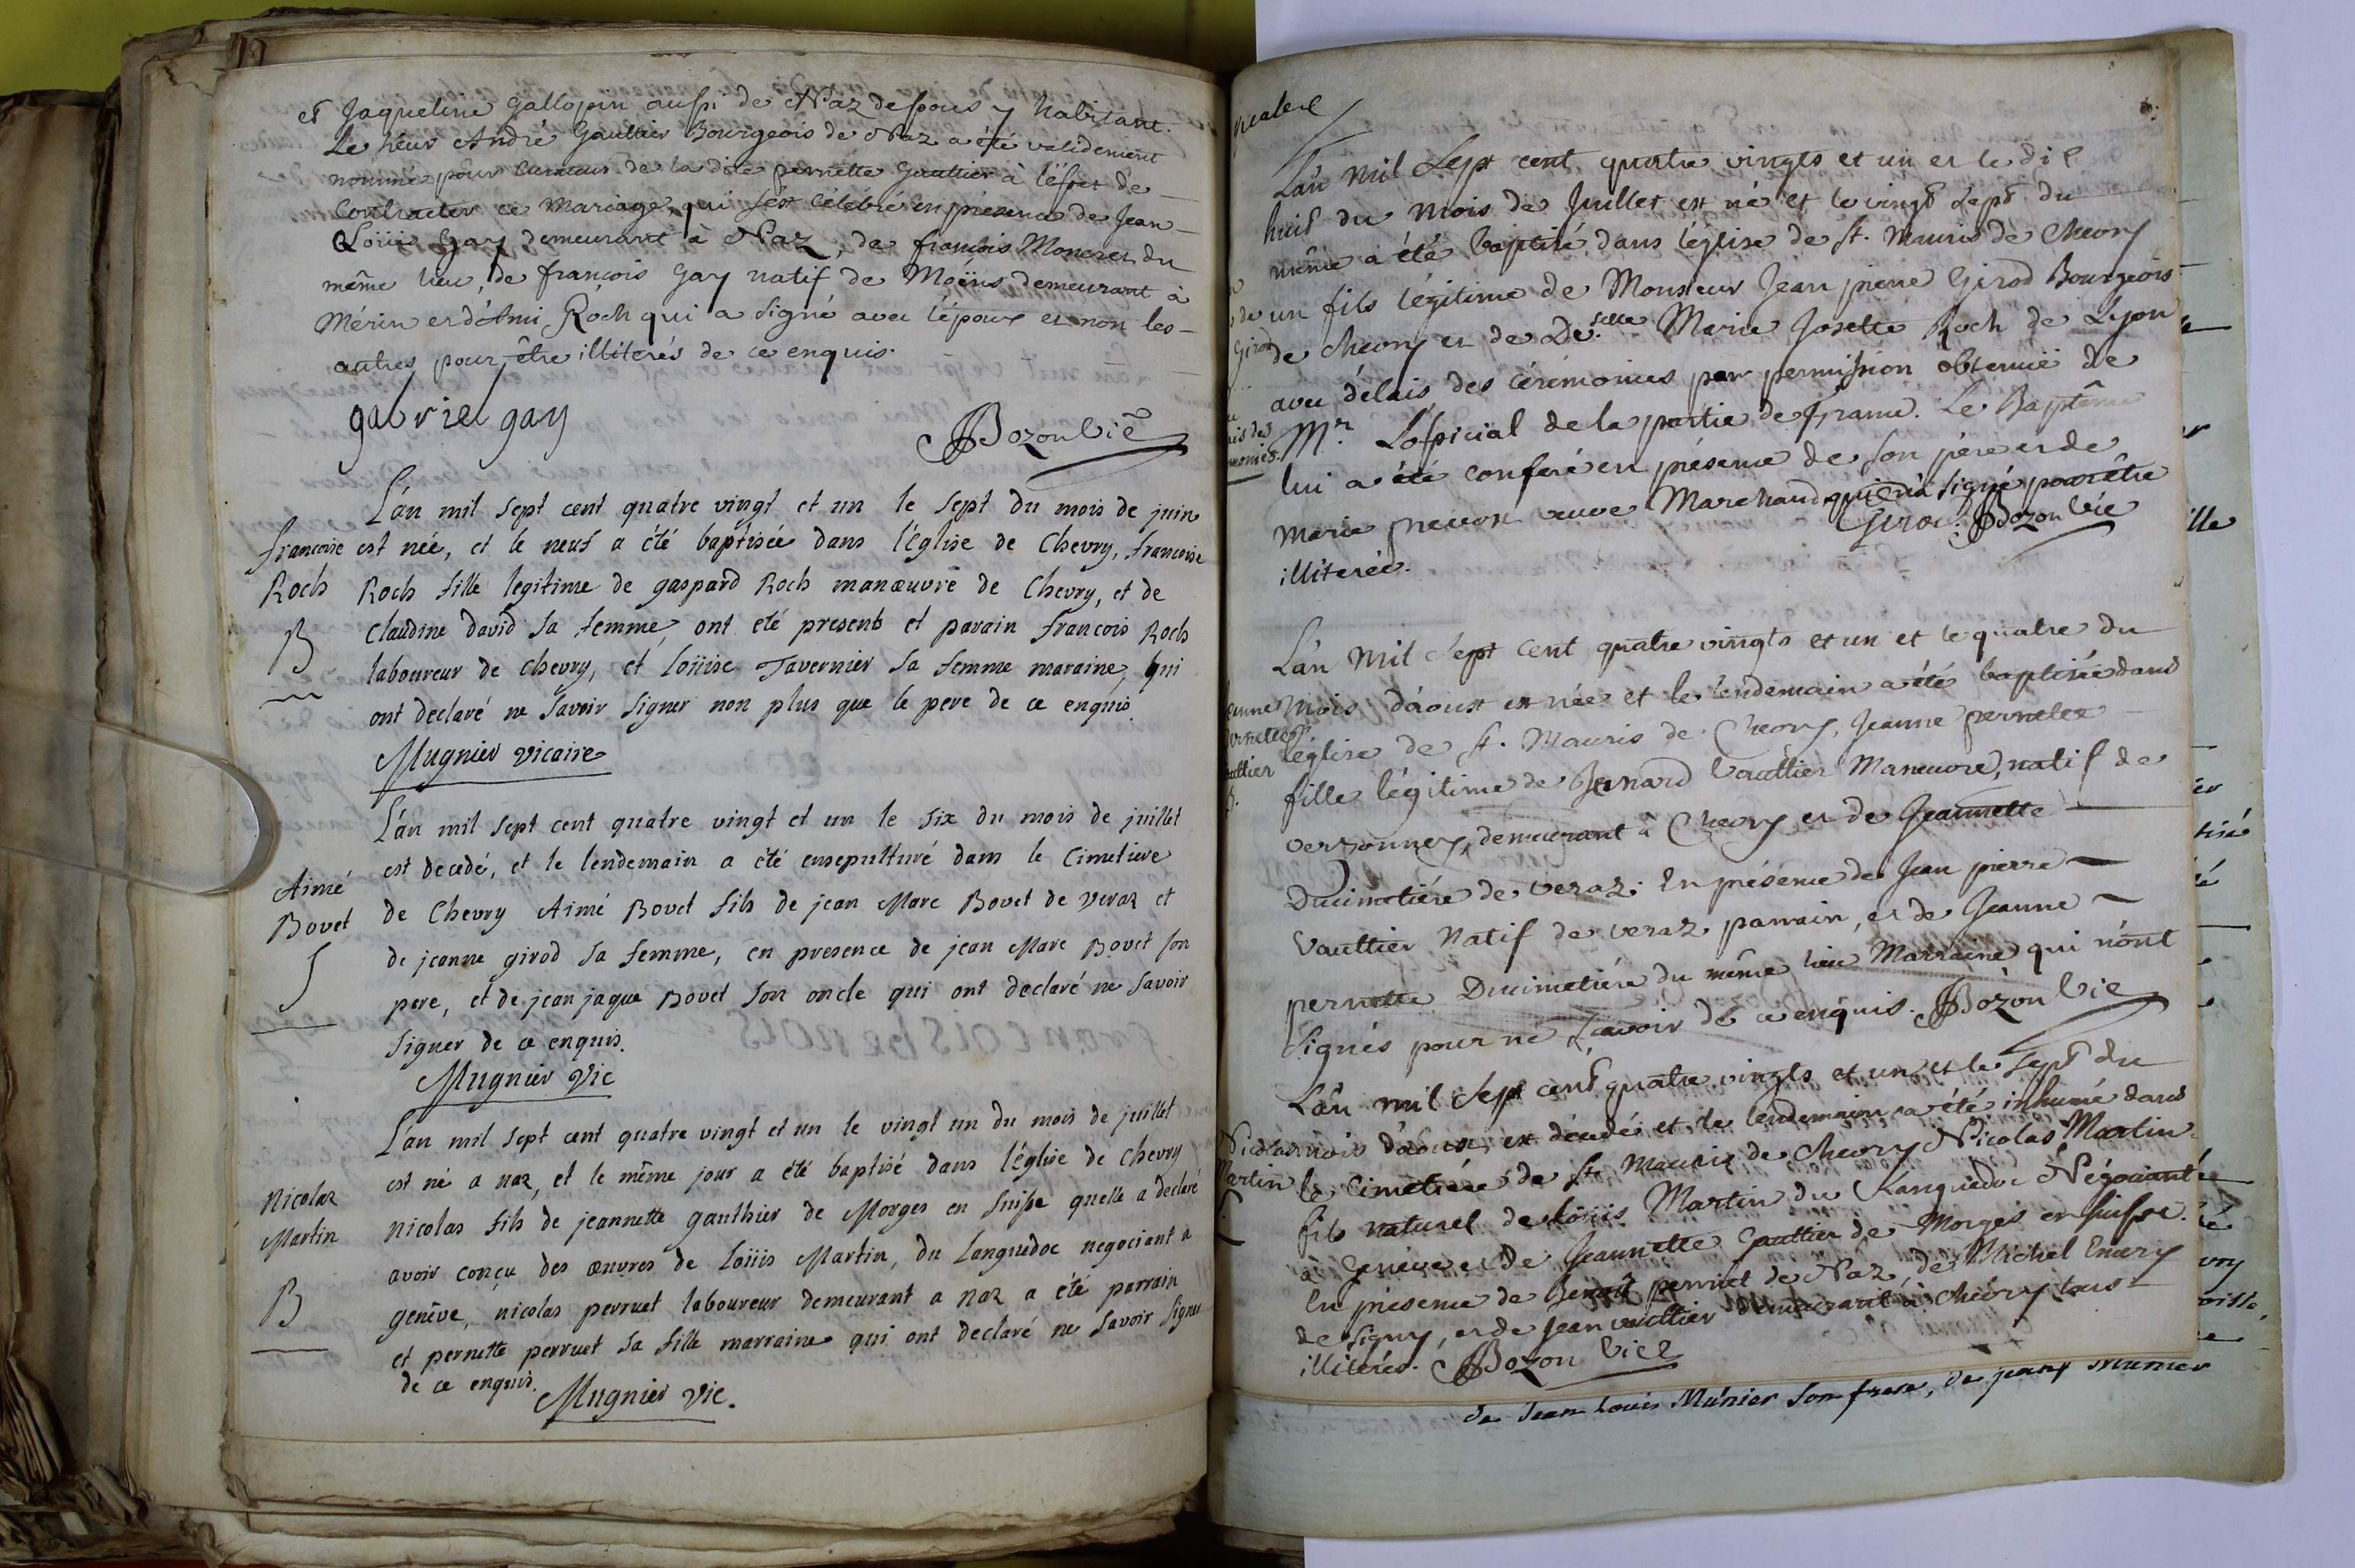 et Jaqueline Gallopin aussi de Naz despous y habitant.
Le sieur André Gaultier Bourgeois de Naz a été validement
nommé pour Curateur de la dite pernette Gaultier à l'effet de
Contracter ce mariage, qui s'est célébré en présence de Jean
Loüis Gay demeurant à Naz, de françois Moneret du
même lieu, de françois Gay natif de Moëns demeurant à
Mérin et d'Ami Roch qui a signé avec l'époux et non les
autres pour être illiterés de ce enquis.
gabriel gay
Bozon vic
L'an mil sept cent quatre vingt et un le sept du mois de juin
francoise est née, et le neuf a été baptisée dans l'église de Chevry, francoise
Roch Roch fille legitime de gaspard Roch manœuvre de Chevry, et de
B Claudine david sa femme, ont eté presents et parain francois Roch
laboureur de chevry, et loüise Tavernier sa femme maraine, qui
ont declaré ne savoir signer non plus que le pere de ce enquis.
Mugnier vicaire
L'an mil sept cent quatre vingt et un le six du mois de juillet
est decedé, et le lendemain a été ensepulturé dans le Cimetiere
Aimé
Bovet de Chevry Aimé Bovet fils de jean Marc Bovet de veraz et
S de jeanne girod sa femme, en presence de jean Marc Bovet son
pere, et de jean jaque Bovet son oncle qui ont declaré ne savoir
signer de ce enquis.
Mugnier vic
L'an mil sept cent quatre vingt et un le vingt un du mois de juillet
est né a naz, et le même jour a été baptisé dans l'église de chevry
Nicolas
Martin nicolas fils de jeannette gauthier de Morges en suisse quelle a declaré
avoir conçu des œuvres de Loüis Martin, du Languedoc negociant a
B genêve, nicolas perruet laboureur demeurant a naz a été parrain
et pernette perruet sa fille marraine qui ont declaré ne savoir signer
de ce enquis.
Mugnier vic.
L'an mil sept cent quatre vingts et un et le dix
huit du mois de Juillet est né et le vingt sept du
même a été baptisé dans l'église de St. Mauris de Chevry
un fils légitime de Monsieur Jean pierre Girod Bourgeois
Girod de Chevry et de De.selle Marie Josette Roch de Lyon
avec délais des cérémonies par permission obtenuë de
Mr. L'official de la partie de france. Le Baptême
lui a été conferé en présence de son père et de
Marie veuve Marchand qui n'a signé pour être
illiterée. Girod. Bozon vic
L'an Mil sept cent quatre vingts et un et le quatre du
mois d'aoust est née et le lendemain a été baptisée dans
l'église de St. Mauris de Chevry, Jeanne pernette
fille légitime de Benard Vaultier Maneuvre, natif de
versonnex, demeurant à Chevry et de Jeannette
Ducimetiére de veraz. En présence de Jean pierre
Vaultier Natif de veraz parrain, et de Jeanne
pernette Ducimetiére du même lieu Marraine qui n'ont
signés pour ne savoir de ce enquis. Bozon vic
L'an mil sept cent quatre vingts et un et le sept du
mois d'aoust est décédé et le lendemain a été inhumé dans
Martin le cimetiére de St. Mauris de Chevry Nicolas Martin
fils naturel de Loüis Martin du Languedoc Négociant
à Genève et de Jeannette Gaultier de Morges en suisse.
En présence de Benoît perruet de Naz, de Michel Emery
de signy, et de Jean vaultier demeurant à Chevry tous
illiterés. Bozon vic
de Jean Louis Munier son frere, de jean Munier